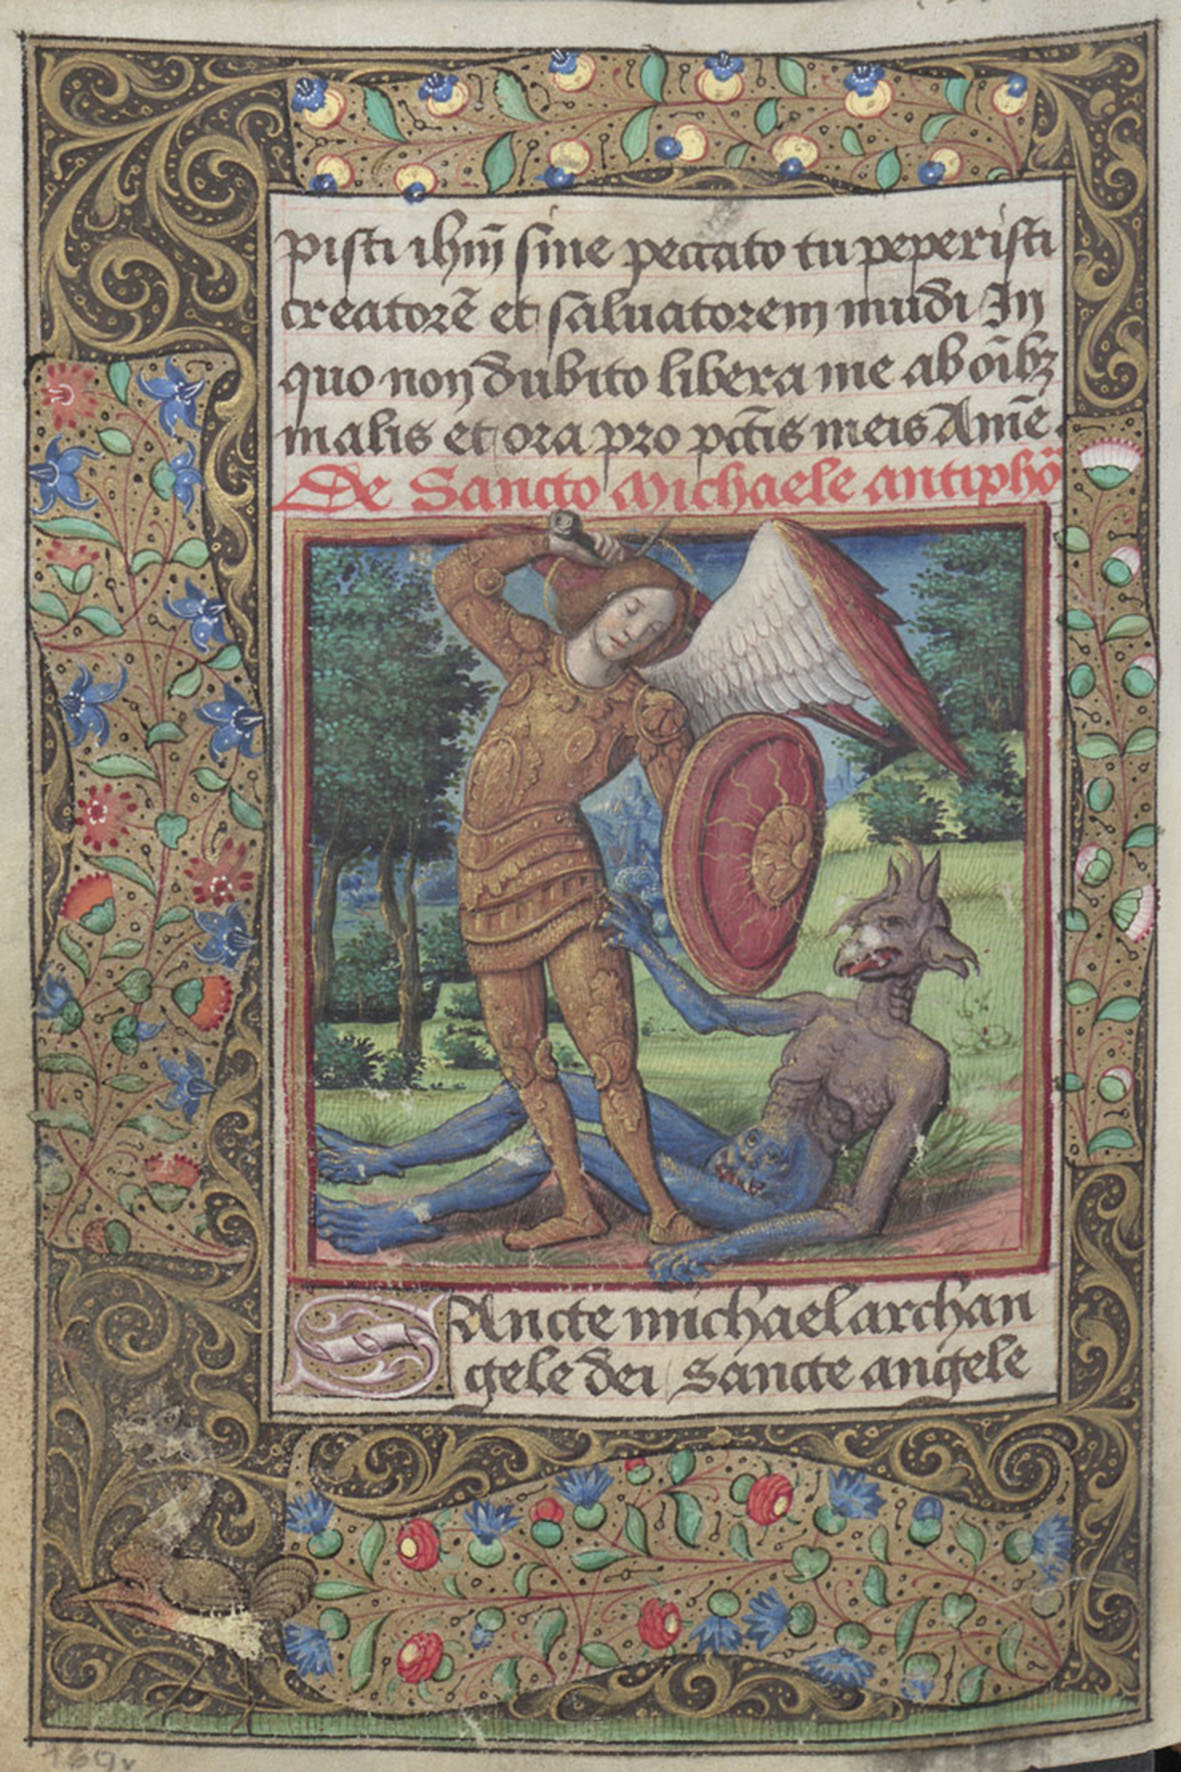 pisti ihm̄ sine peccato tu peperisti
creatorē et saluatorem mūdi In
quo non dubito libera me ab oībꝫ
malis et ora pro pctīs meis Amē.
De Sancto Michaele antiphō
SAncte michael archan
gele dei sancte angele
169v